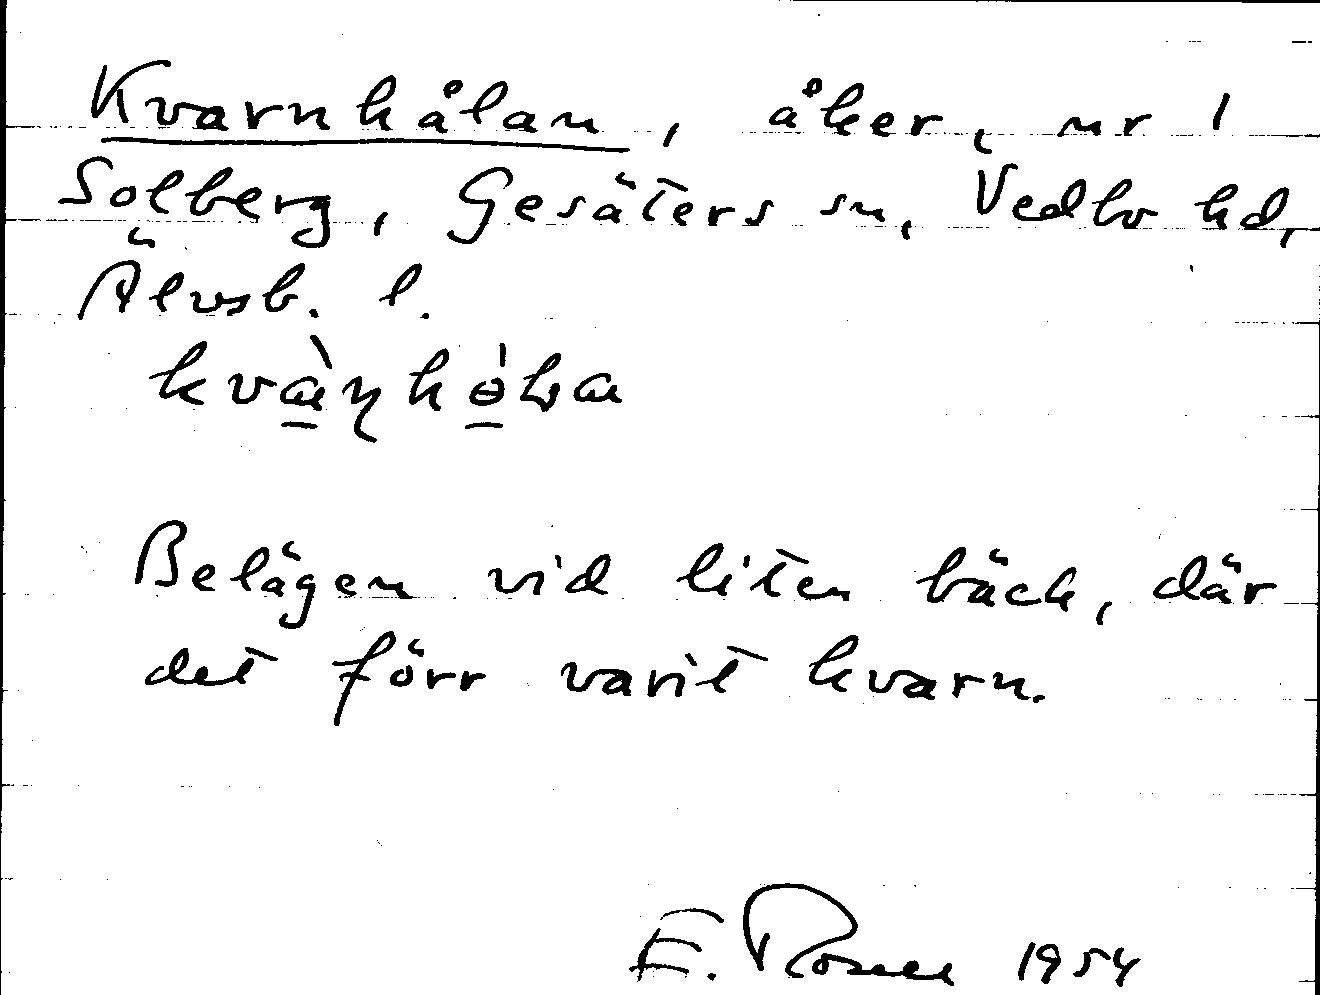 Kvarnhålan, åker, nr 1
Solberg, Gesäters sn, Vedbo hd,
Älvsb. l.
Belägen vid liten bäck, där
det förr varit kvarn.
E. Rosell 1954